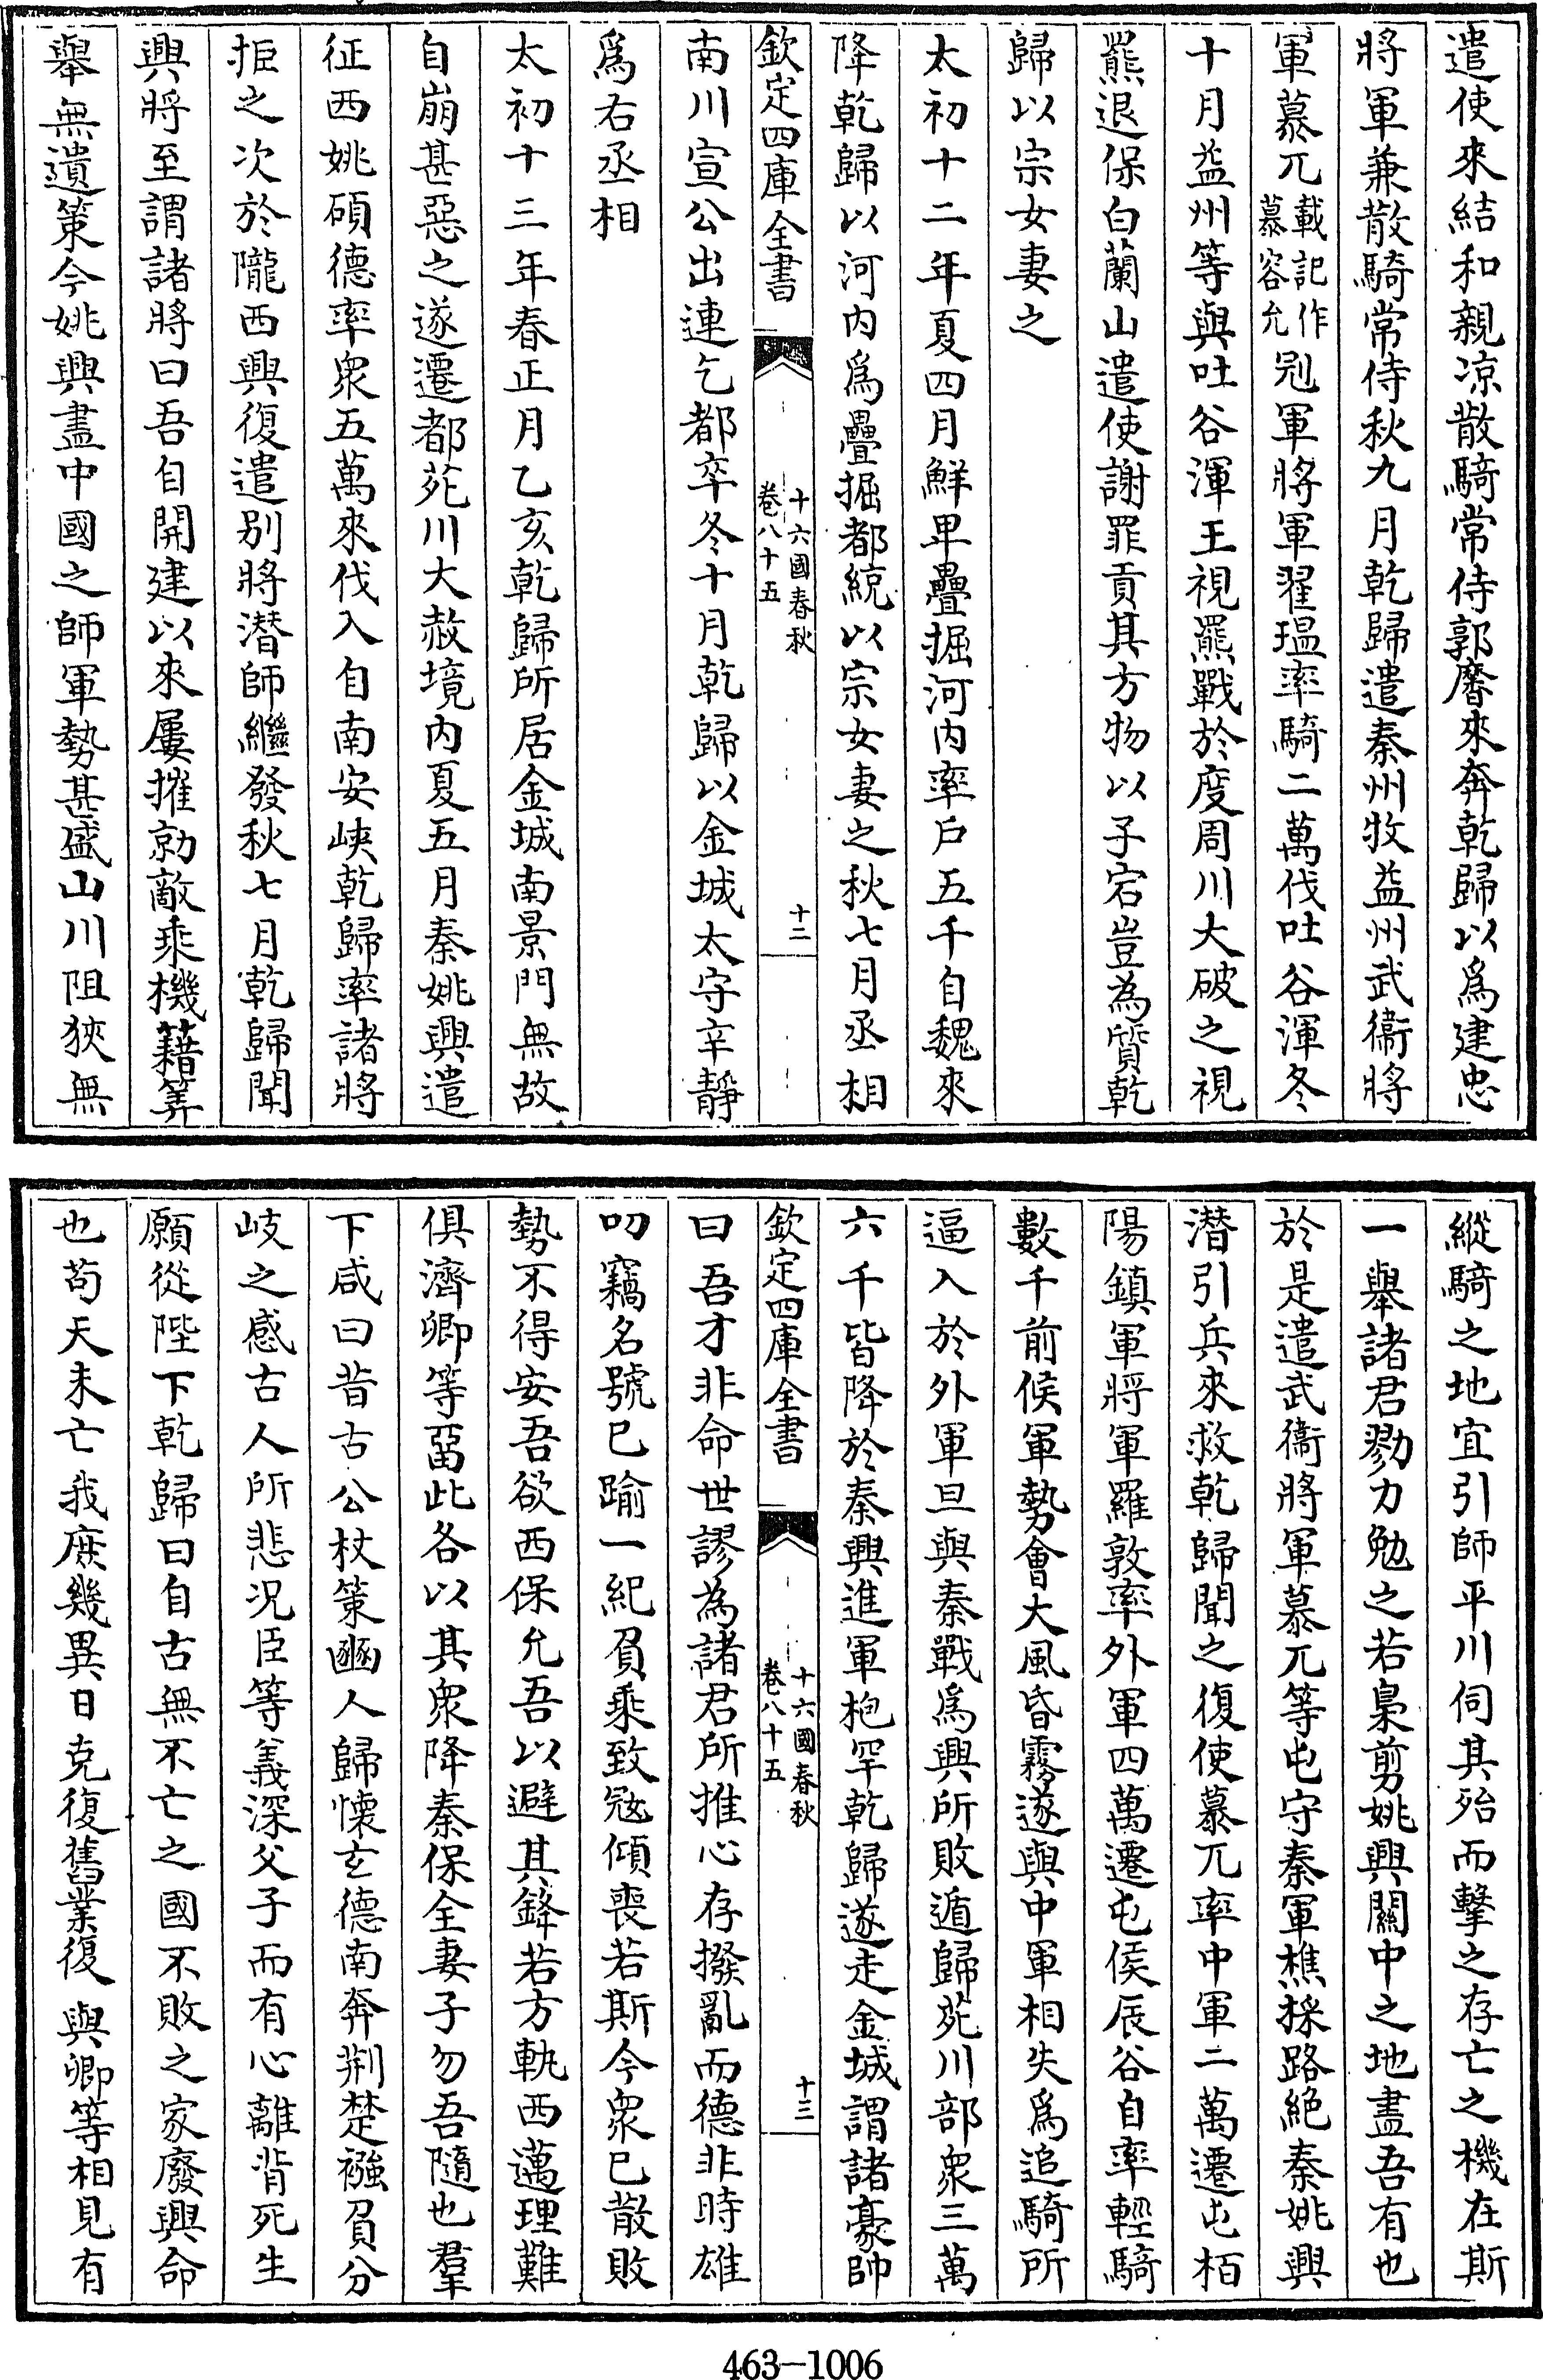 遣使來結和親凉散騎常侍郭黁來奔乾歸以爲建忠
將軍兼散騎常侍秋九月乾歸遣秦州牧益州武衞將
軍慕兀載記作慕容允冠軍將軍翟瑥率騎二萬伐吐谷渾冬
十月益州等與吐谷渾王視羆戰於度周川大破之視
羆退保白蘭山遣使謝罪貢其方物以子宕豈為質乾
歸以宗女妻之
太初十二年夏四月鮮卑疊掘河内率户五千自魏來
降乾歸以河内爲疊掘都統以宗女妻之秋七月丞相
欽定四庫全書
十六國春秋
卷八十五
十二
南川宣公出連乞都卒冬十月乾歸以金城太守辛靜
爲右丞相
太初十三年春正月乙亥乾歸所居金城南景門無故
自崩甚惡之遂遷都苑川大赦境内夏五月秦姚興遣
征西姚碩德率衆五萬來伐入自南安峽乾歸率諸將
拒之次於隴西興復遣别將潛師繼發秋七月乾歸聞
興將至謂諸將曰吾自開建以來屢摧勍敵乘機藉筭
舉無遺策今姚興盡中國之師軍勢甚盛山川阻狹無
縱騎之地宜引師平川伺其殆而擊之存亡之機在斯
一舉諸君勠力勉之若梟剪姚興關中之地盡吾有也
於是遣武衞將軍慕兀等屯守秦軍樵採路絶秦姚興
潛引兵來救乾歸聞之復使慕兀率中軍二萬遷屯栢
陽鎮軍將軍羅敦率外軍四萬遷屯侯辰谷自率輕騎
數千前候軍勢會大風昏霧遂與中軍相失爲追騎所
逼入於外軍旦與秦戰爲興所敗遁歸苑川部衆三萬
六千皆降於秦興進軍枹罕乾歸遂走金城謂諸豪帥
欽定四庫全書
十六國春秋
卷八十五
十三
曰吾才非命世謬為諸君所推心存撥亂而德非時雄
叨竊名號已踰一紀負乘致冦傾喪若斯今衆已散敗
勢不得安吾欲西保允吾以避其鋒若方軌西邁理難
俱濟卿等畱此各以其衆降秦保全妻子勿吾隨也羣
下咸曰昔古公杖策豳人歸懷玄德南奔荆楚襁負分
岐之感古人所悲况臣等義深父子而有心離背死生
願從陛下乾歸曰自古無不亡之國不敗之家廢興命
也苟天未亡我庶幾異日克復舊業復與卿等相見有
463-1006